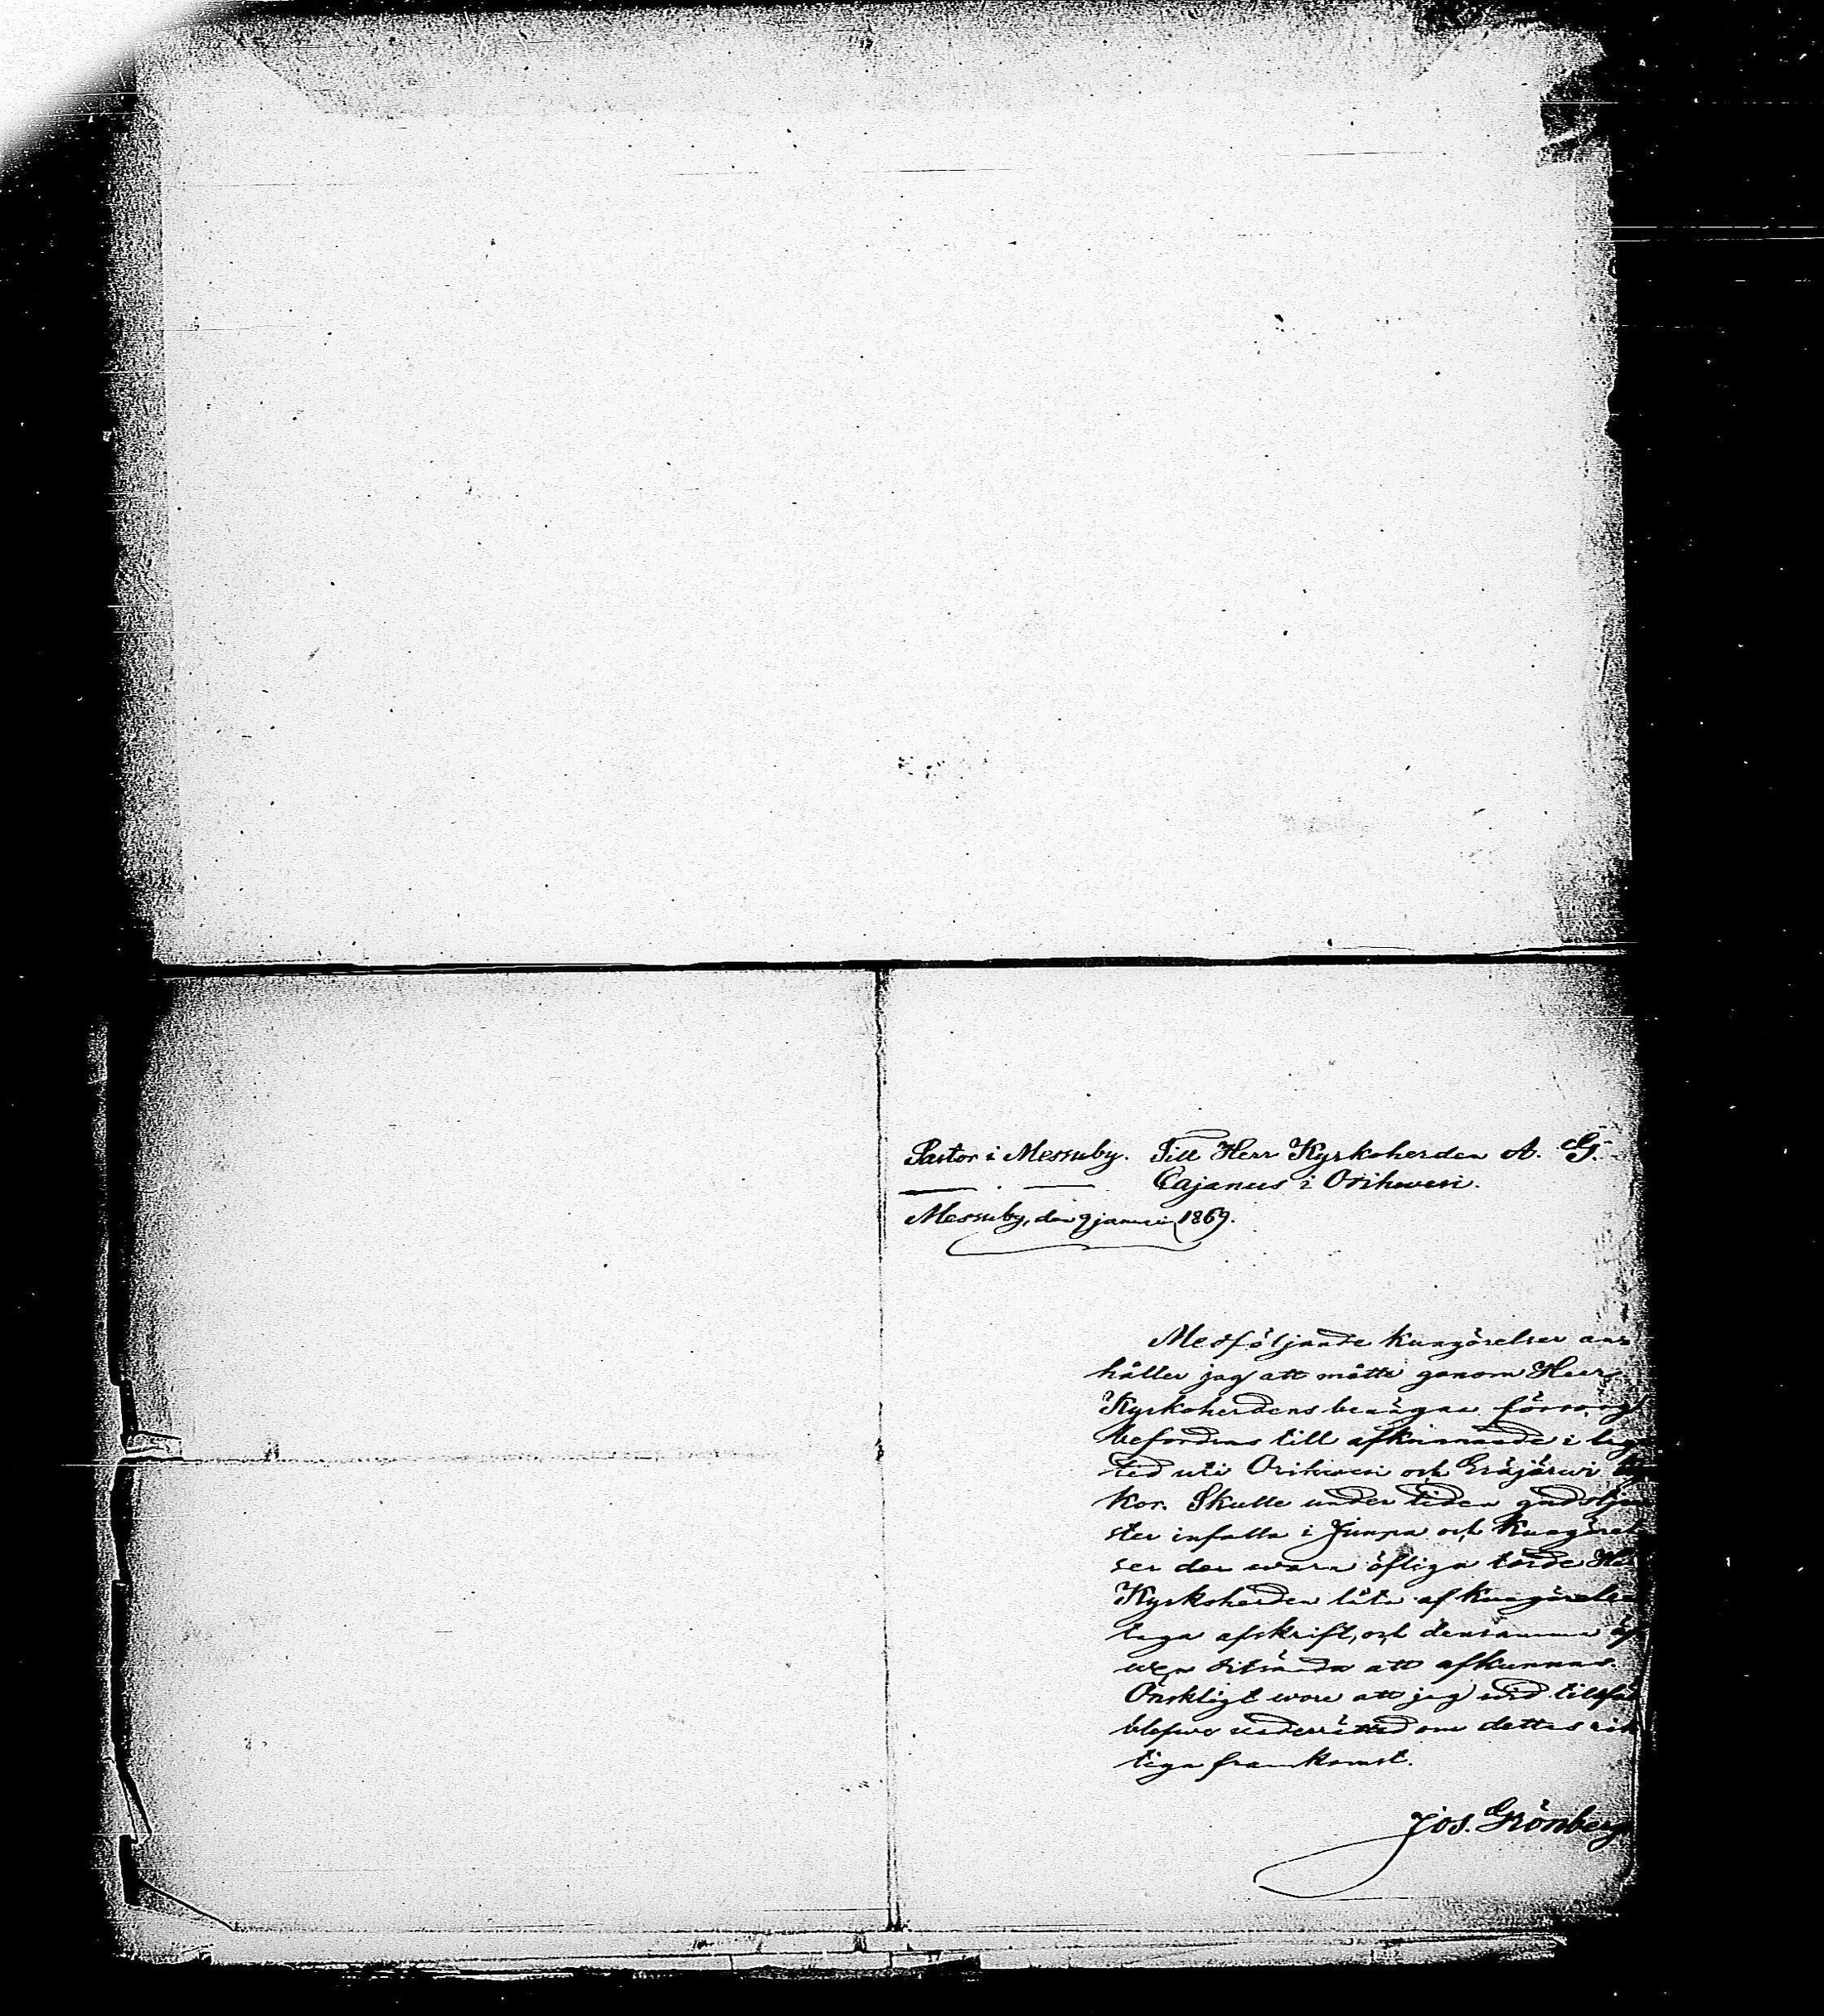 Pastor i Messuby. Till Herr Kyrkoherden A. G.
Cajanus i Orihvesi.
Messuby, den 9 januari 1869.
Medföljande kungörelser an-
håller jag att måtte genom Herr
Kyrkoherdens benägna försorg
befordras till afkunnande i lag
tid uti Orihvesi och Eräjärvi kyr
kor. Skulle under tiden gudstjen
ster infalla i Jünpa och Kungörel
ser der vara öfliga torde Her
Kyrkoherden låta af Kungörelser
taga afskrift, och densamma äf
ven ditsända att afkunnas.
Önskligt vore att jag vid tillfäl
blefve underrättad om dettas rik
tiga framkomst.
Jos. Grönberg